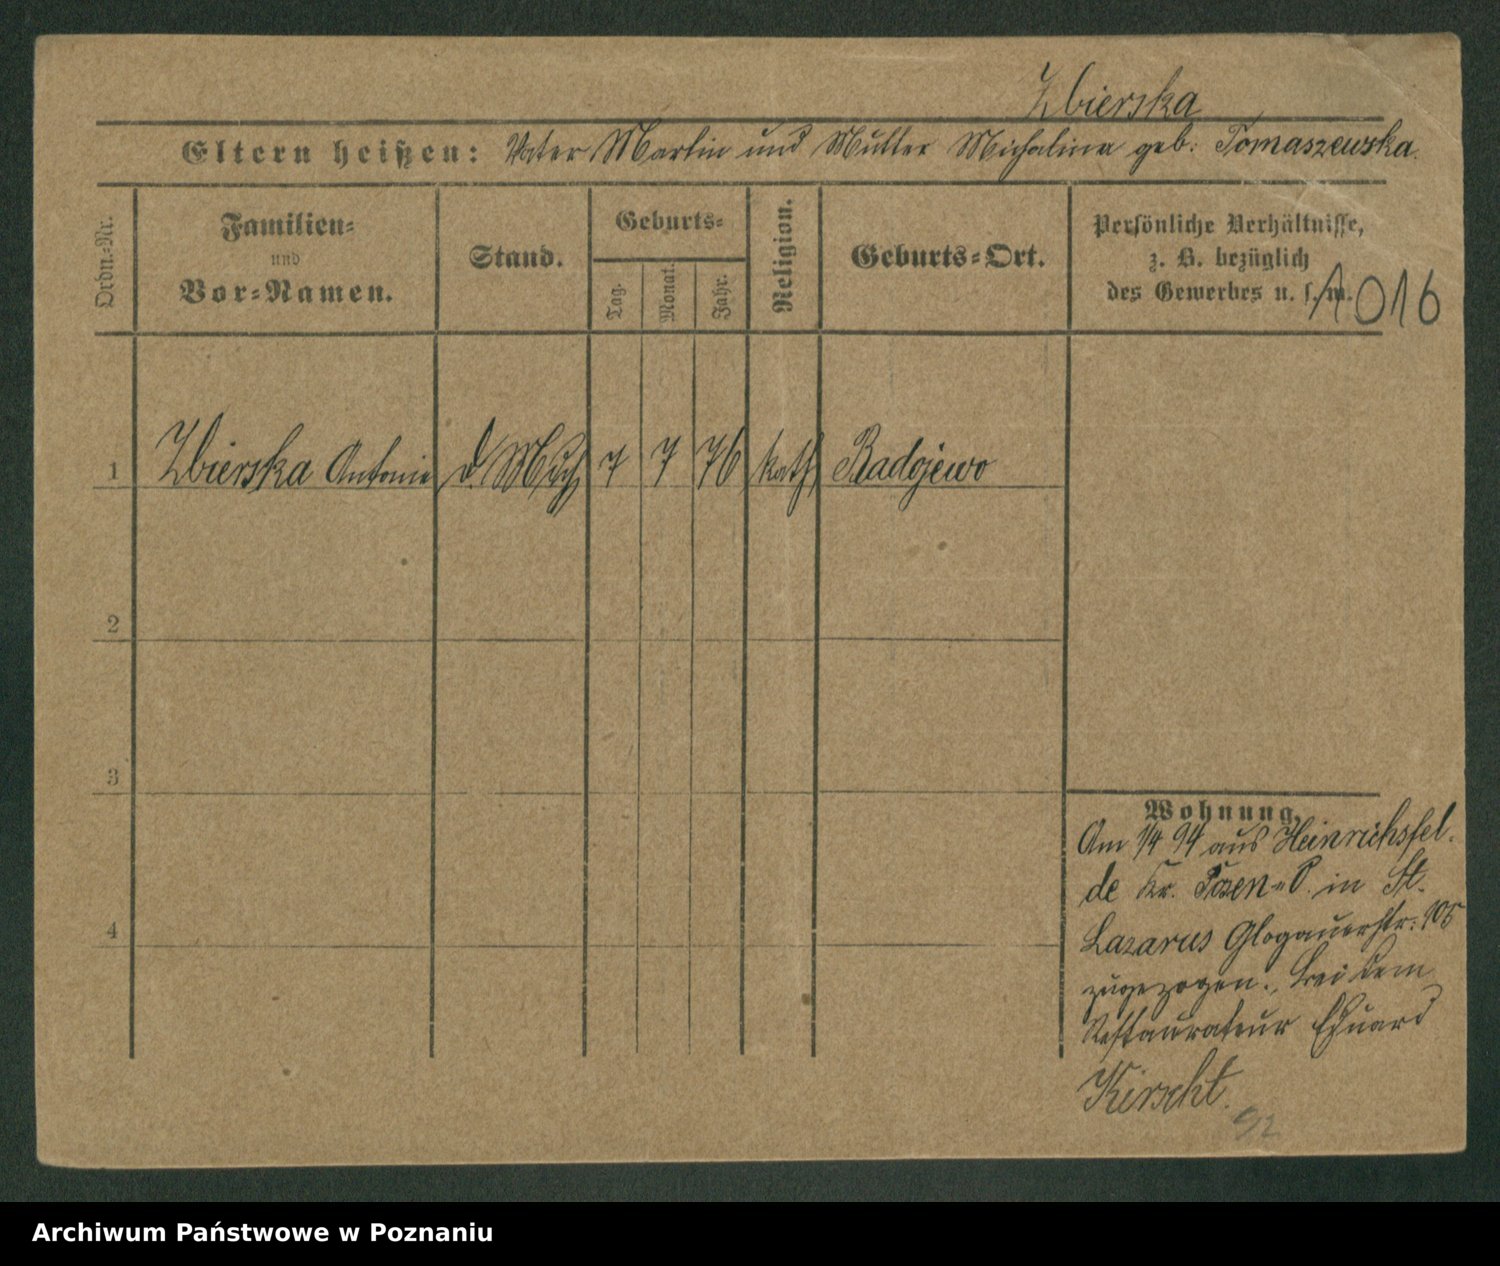 Zbierska
Eltern heißen: Vater Martin und Mutter Michalina geb. Tomaszewska.
Ordn.-Nr.
Familien-
und
Vor-Namen.
Stand.
Geburts-
Tag.
Monat.
Jahr.
Religion.
Geburts-Ort.
Persönliche Verhältnisse,
z. B. bezüglich
des Gewerbes u. s. w.
1016
1 Zbierska Antonie d. Mgd 7 7 76 kath Radojewo
2
3
4
Wohnung.
Am 1/4 94 aus Heinrichsfel-
de Kr. Posen-O. in St.
Lazarus Glogauerstr. 105
zugezogen., bei dem
Restaurateur Eduard
Kirscht.
92
Archiwum Państwowe w Poznaniu